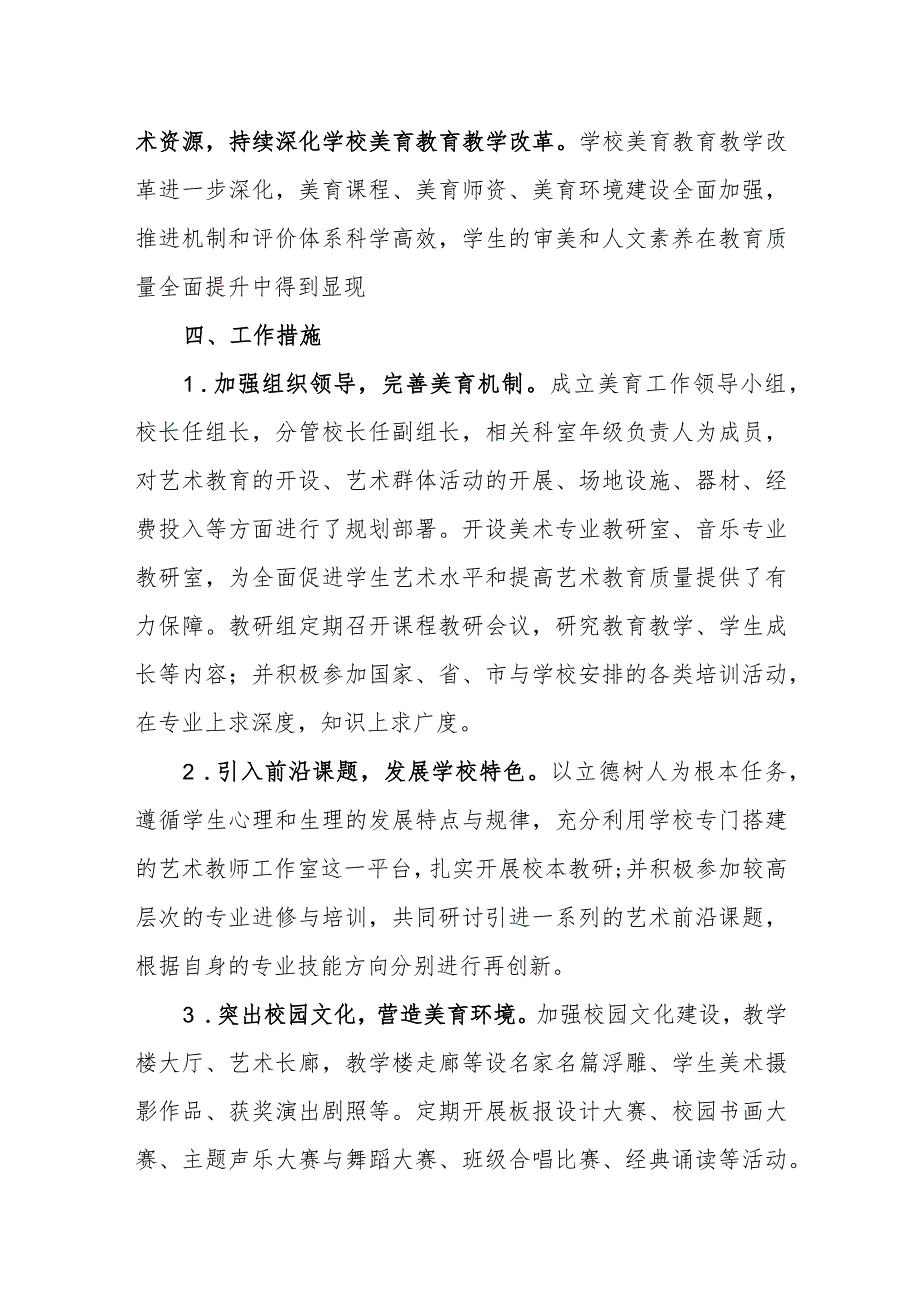 术资源，持续深化学校美育教育教学改革。学校美育教育教学改
革进一步深化，美育课程、美育师资、美育环境建设全面加强，
推进机制和评价体系科学高效，学生的审美和人文素养在教育质
量全面提升中得到显现
四、工作措施
1.加强组织领导，完善美育机制。成立美育工作领导小组，
校长任组长，分管校长任副组长，相关科室年级负责人为成员，
对艺术教育的开设、艺术群体活动的开展、场地设施、器材、经
费投入等方面进行了规划部署。开设美术专业教研室、音乐专业
教研室，为全面促进学生艺术水平和提高艺术教育质量提供了有
力保障。教研组定期召开课程教研会议，研究教育教学、学生成
长等内容；并积极参加国家、省、市与学校安排的各类培训活动，
在专业上求深度，知识上求广度。
2.引入前沿课题，发展学校特色。以立德树人为根本任务，
遵循学生心理和生理的发展特点与规律，充分利用学校专门搭建
的艺术教师工作室这一平台，扎实开展校本教研;并积极参加较高
层次的专业进修与培训，共同研讨引进一系列的艺术前沿课题，
根据自身的专业技能方向分别进行再创新。
3.突出校园文化，营造美育环境。加强校园文化建设，教学
楼大厅、艺术长廊，教学楼走廊等设名家名篇浮雕、学生美术摄
影作品、获奖演出剧照等。定期开展板报设计大赛、校园书画大
赛、主题声乐大赛与舞蹈大赛、班级合唱比赛、经典诵读等活动。